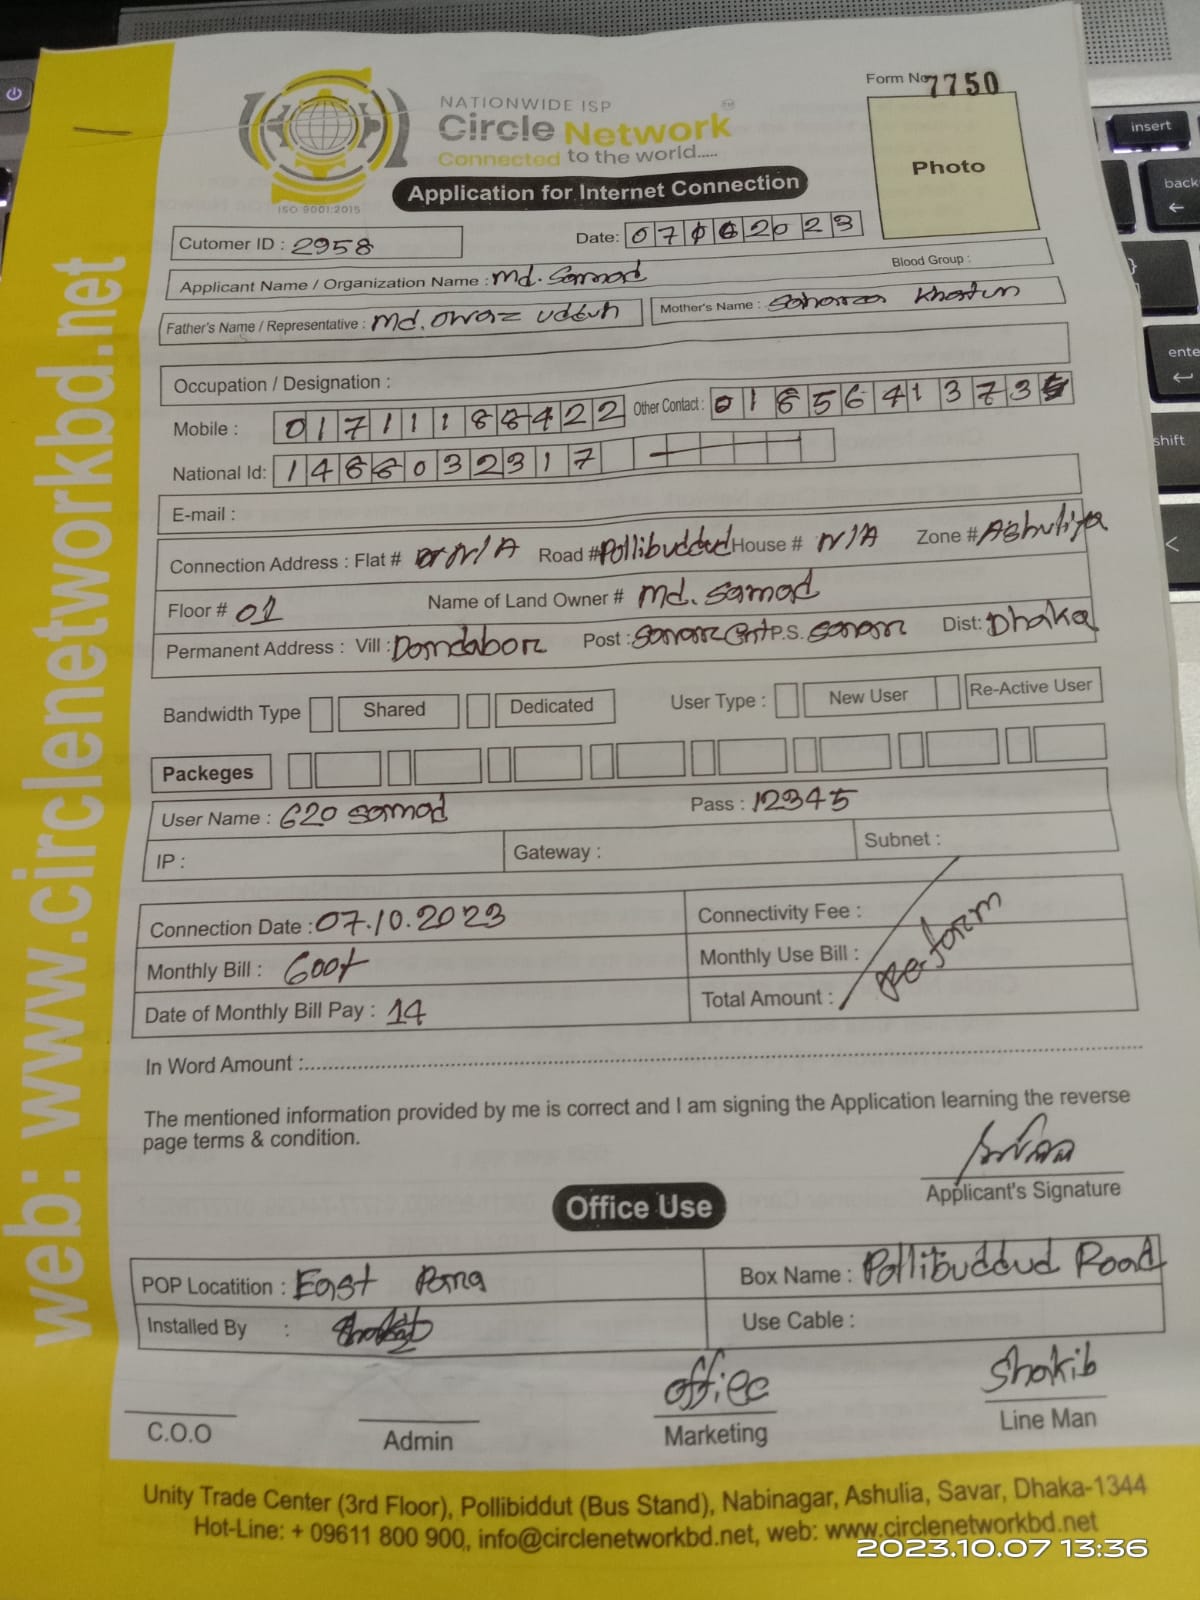 Form No 7750
NATIONWIDE ISP
Circle Network
Connected to the world.....
ISO 9001:2015
Application for Internet Connection
Photo
Cutomer ID : 2958
Date: 07 2023
Applicant Name / Organization Name : Md. Samad
Blood Group :
Father's Name / Representative : Md. Owaz Uddin
Mother's Name : Khatun
Occupation / Designation :
Mobile : 01711188422
Other Contact :
National Id: 1488032317
E-mail :
Connection Address : Flat # N/A Road # Pollibuddud House # N/A Zone # Ashuliya
Floor # 01 Name of Land Owner # Md. Samad
Permanent Address : Vill : Post : P.S. Dist: Dhaka
Bandwidth Type Shared Dedicated User Type : New User Re-Active User
Packeges
User Name : G20 Samad Pass : 12345
IP : Gateway : Subnet :
Connection Date : 07.10.2023 Connectivity Fee :
Monthly Bill : 600/- Monthly Use Bill :
Date of Monthly Bill Pay : 14 Total Amount :
Re-form
In Word Amount :
The mentioned information provided by me is correct and I am signing the Application learning the reverse
page terms & condition.
Applicant's Signature
Office Use
POP Locatition : East Box Name : Pollibuddud Road
Installed By : Use Cable :
office Shakib
C.O.O Admin Marketing Line Man
Unity Trade Center (3rd Floor), Pollibiddut (Bus Stand), Nabinagar, Ashulia, Savar, Dhaka-1344
Hot-Line: + 09611 800 900, info@circlenetworkbd.net, web: www.circlenetworkbd.net
web: www.circlenetworkbd.net
insert
back
enter
shift
2023.10.07 13:36